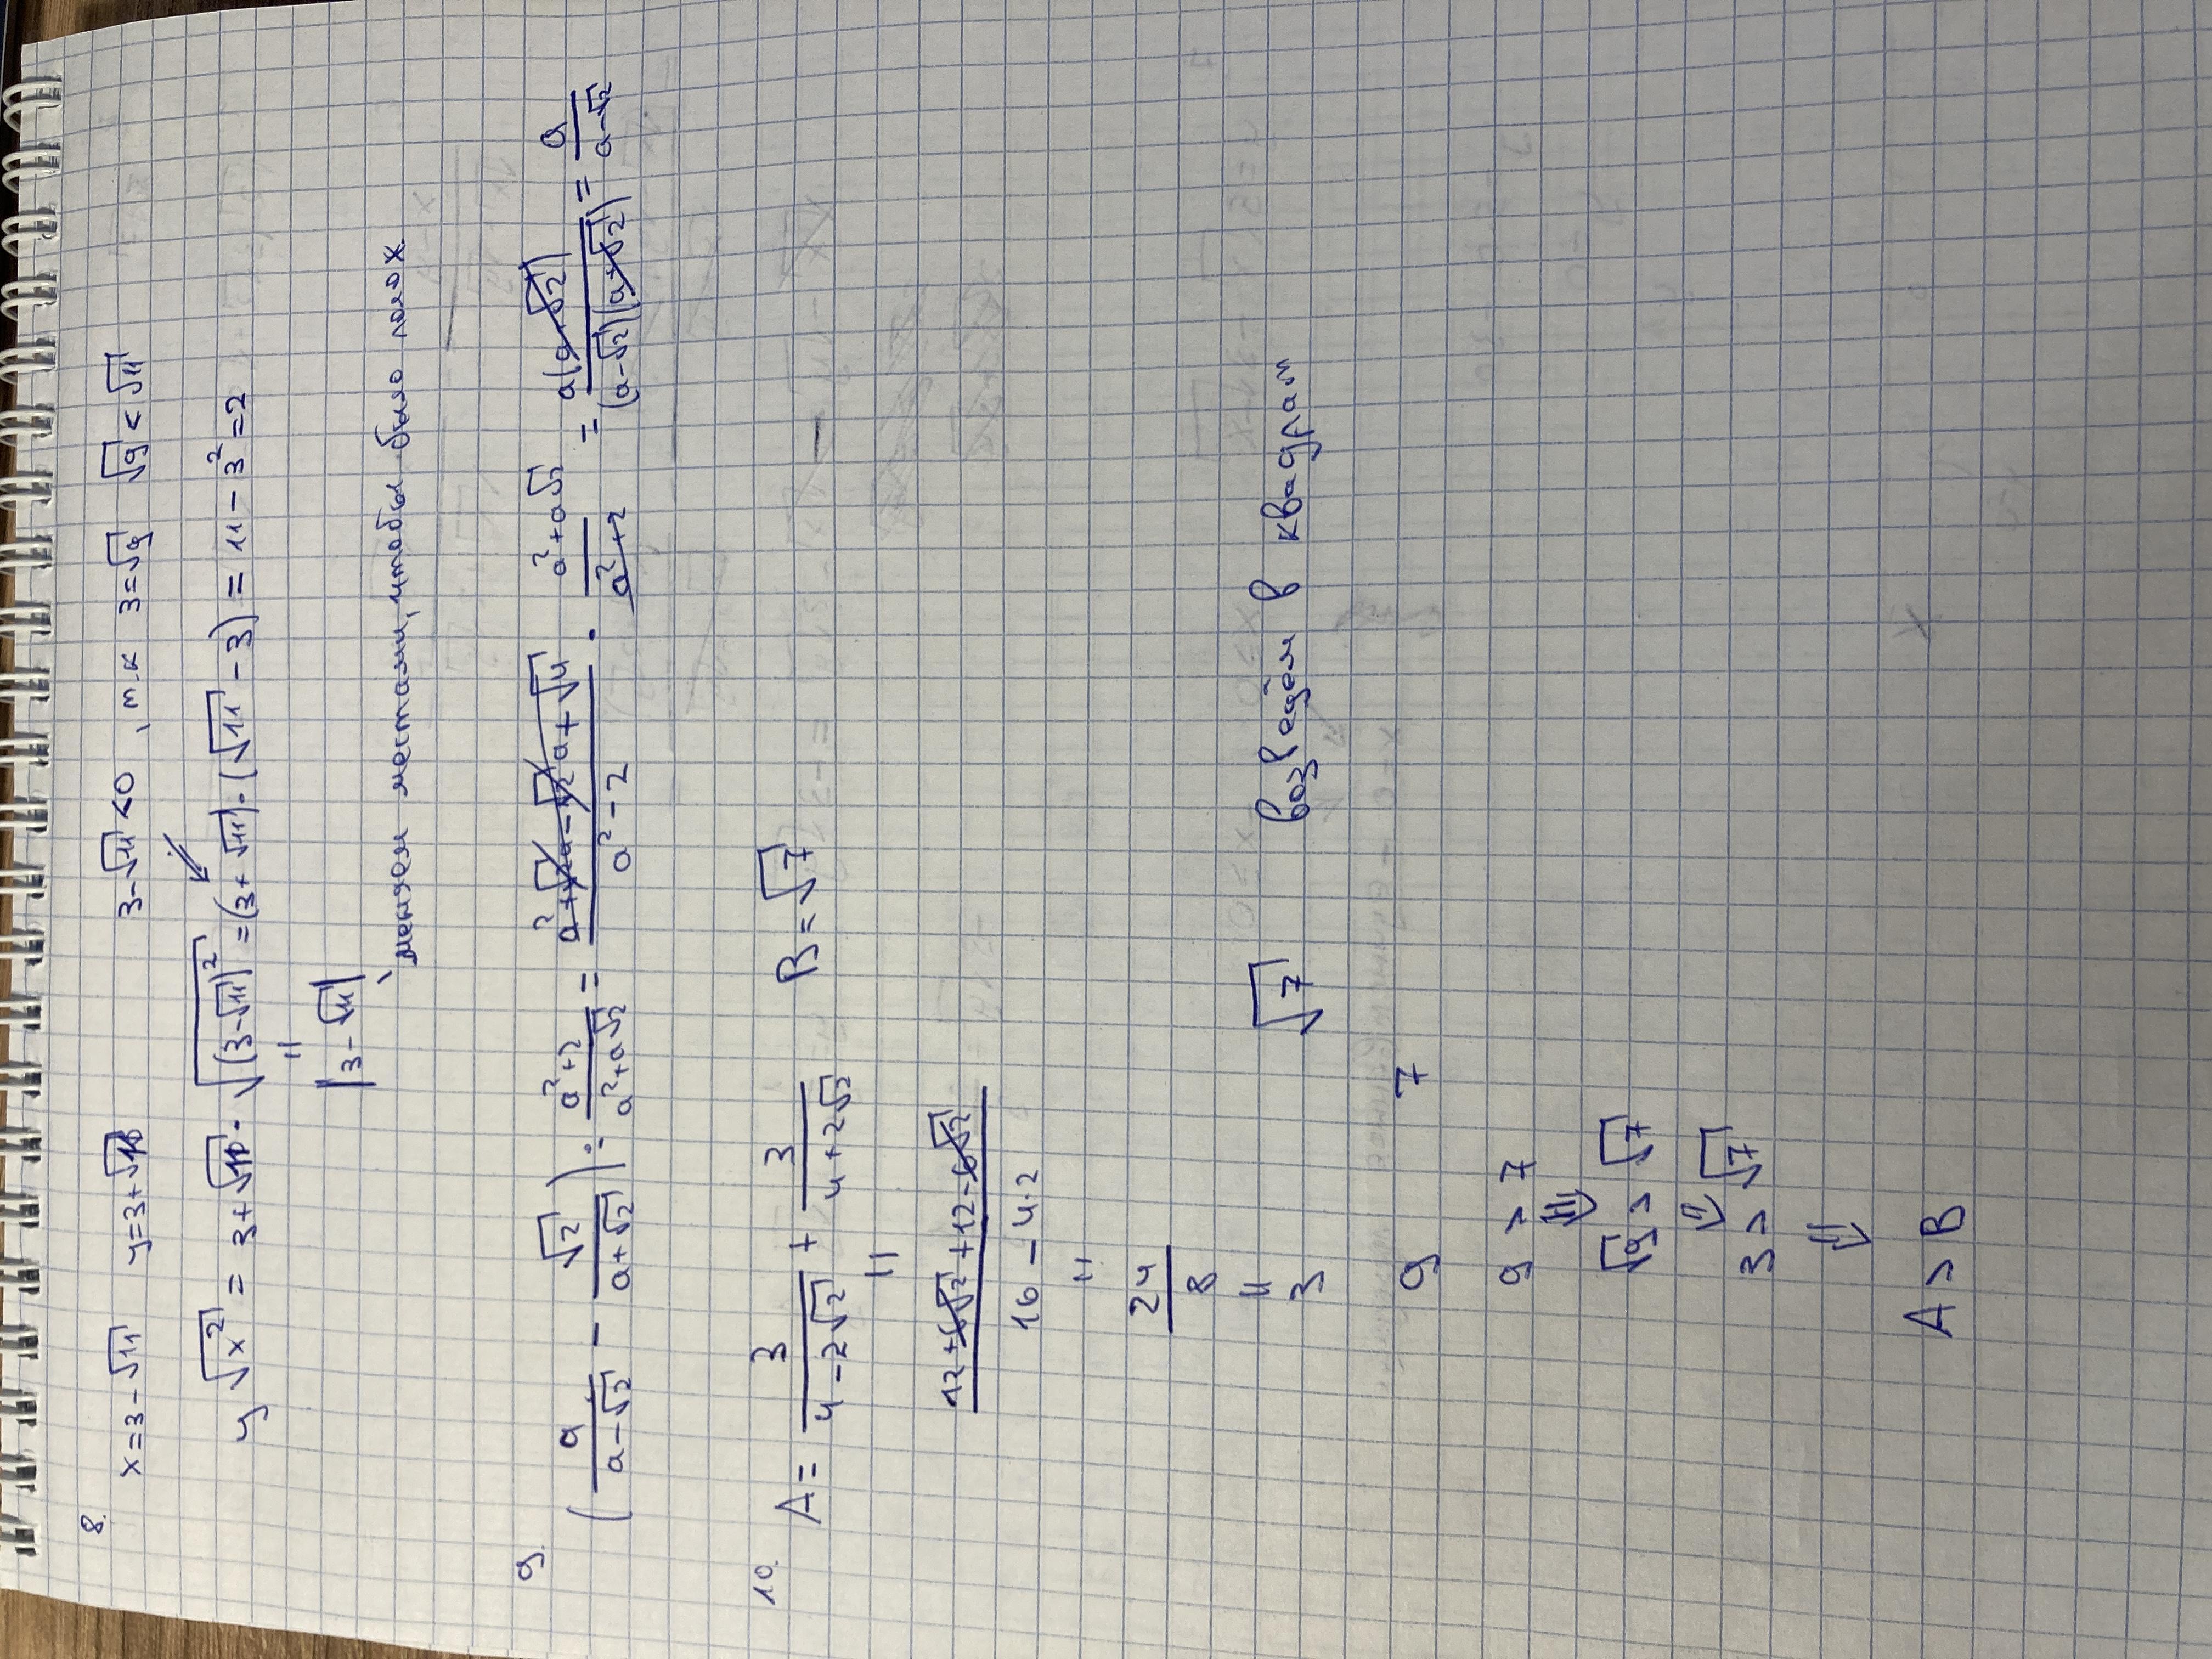 8.
x=3-√11 y=3+√11 3-√11<0, т.к 3=√9 √9<√11
y√x² = 3+√11 · √(3-√11)² =(3+√11)·(√11-3) = 11-3²=2
"
|3-√11|
меняем местами, чтобы было полож.
9.
(a/(a-√2) - √2/(a+√2)) : (a²+2)/(a²+a√2) = (a²+√2a-√2a+√4)/(a²-2) · (a²+a√2)/(a²+2) = a(a+√2)/((a-√2)(a+√2)) = a/(a-√2)
10.
A= 3/(4-2√2) + 3/(4+2√2) B=√7
"
(12+6√2+12-6√2)/(16-4·2)
"
24/8
"
3 √7 возведём в квадрат
9 7
9 > 7
⇓
√9 > √7
⇓
3 > √7
⇓
A > B